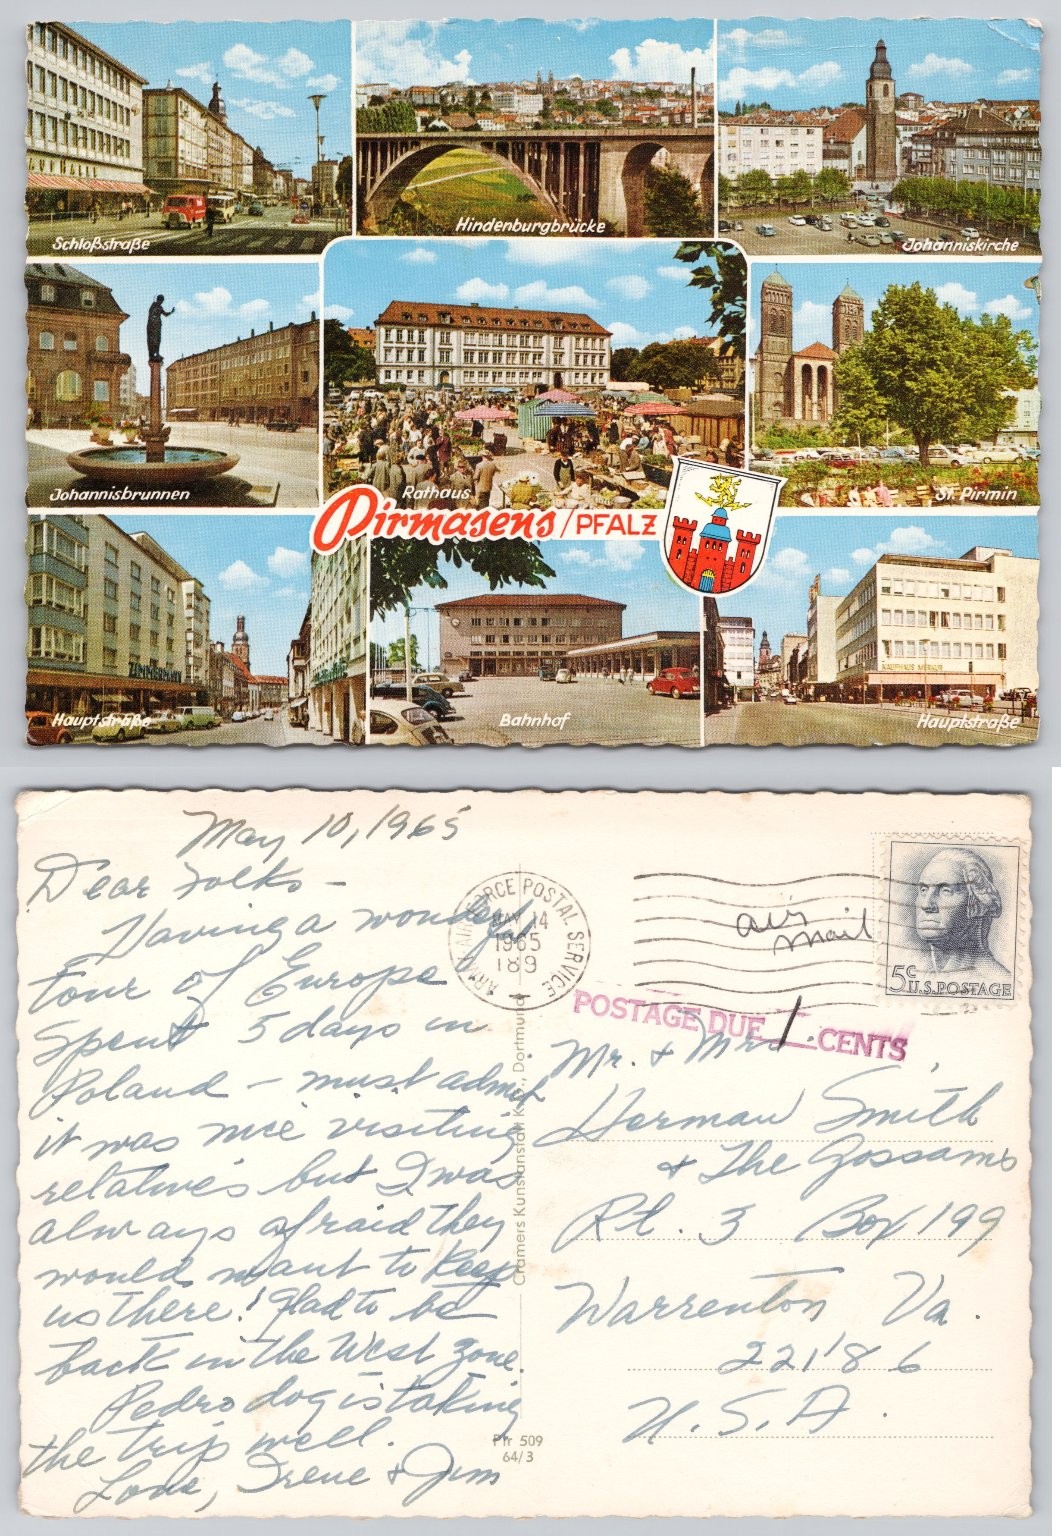 Schloßstraße
Hindenburgbrücke
Johanniskirche
Johannisbrunnen
Rathaus
St. Pirmin
Pirmasens/PFALZ
ZIMMERMANN
KAUFHAUS MERKUR
Hauptstraße
Bahnhof
Hauptstraße
May 10, 1965
Dear Folks -
Having a wonderful
tour of Europe
Spent 5 days in
Poland - must admit
it was nice visiting
relatives but I was
always afraid they
would want to keep
us there! Glad to be
back in the West Zone.
Pedro dog is taking
the trip well.
Love, Irene & Jim
ARMY AIR FORCE POSTAL SERVICE
MAY 14
1965
189
air
mail
5c
U.S. POSTAGE
POSTAGE DUE 1 CENTS
Mr. & Mrs.
Herman Smith
& The Gossams
Rt. 3 Box 199
Warrenton Va.
22186
U.S.A.
Cramers Kunstanstalt KG., Dortmund
Pfr 509
64/3